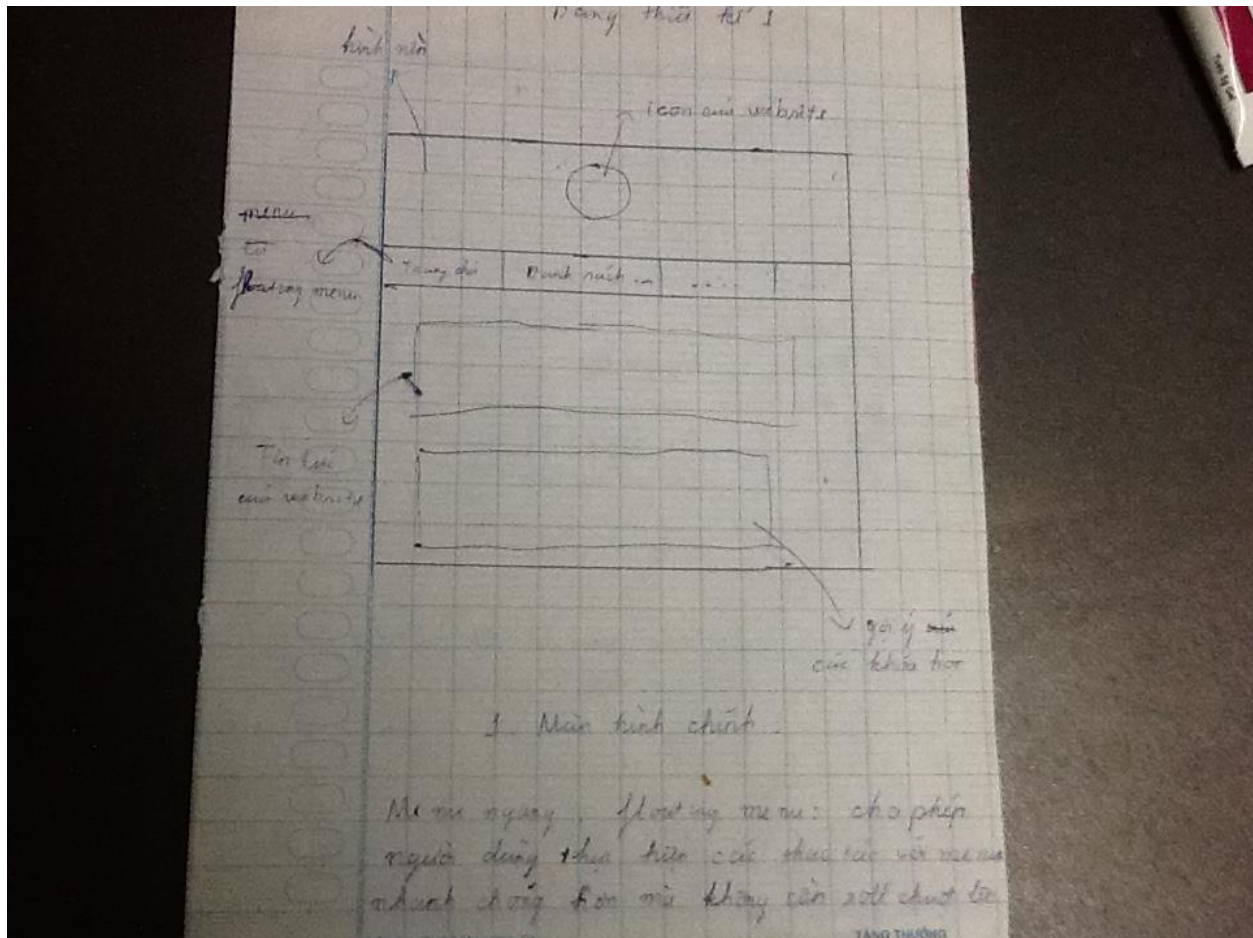 Dạng thiết kế 1
hình nền
icon của website
menu
floating menu
Trang chủ
Danh sách ...
....
Tin tức
của website
gợi ý
các khóa học
1. Màn hình chính.
Menu ngang, floating menu: cho phép
người dùng thực hiện các thao tác với menu
nhanh chóng hơn mà không cần roll chuột lên
TẬNG THƯỞNG